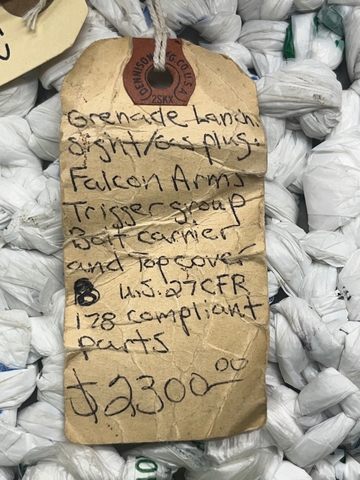 DENNISON MFG CO. U.S.A
2SKX
Grenade Lanch
sight/gas plug.
Falcon Arms
Trigger group
Bolt carrier
and Top cover
8 U.S. 27 CFR
178 compliant
parts
$2300.00